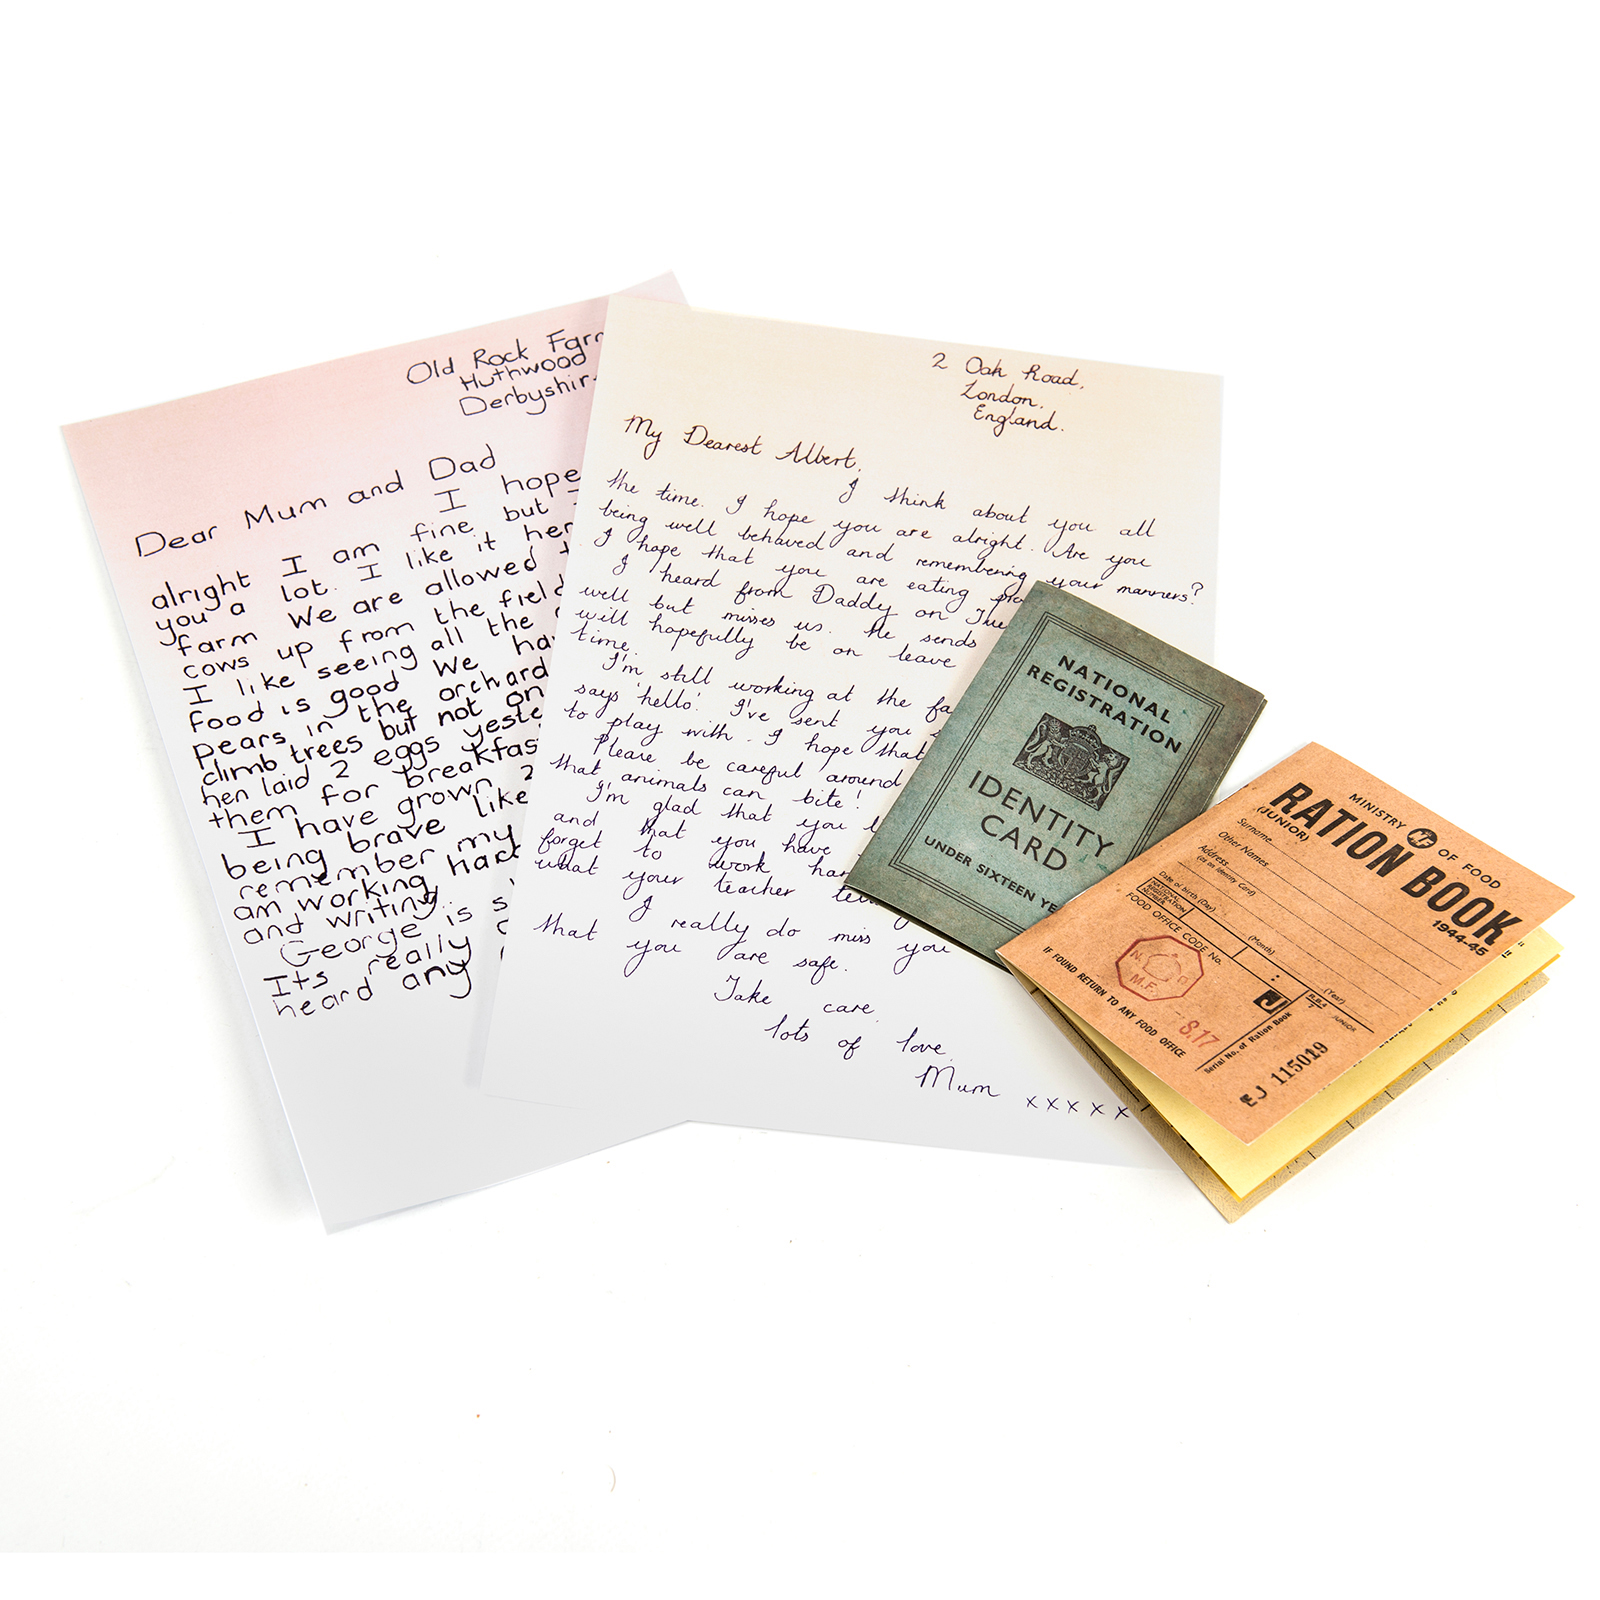 Old Rock Farm
Huthwood
Derbyshir
Dear Mum and Dad
I hope
alright I am fine but
you a lot. I like it her
farm We are allowed
cows up from the field
I like seeing all the
food is good We hav
pears in the orchard
climb trees but not on
hen laid 2 eggs yeste
them for breakfas
I have grown 2
being brave like
remember my
am working hard
and writing.
George is s
Its really
heard any
2 Oak Road,
London,
England.
My Dearest Albert,
I think about you all
the time. I hope you are alright. Are you
being well behaved and remembering your manners?
I hope that you are eating pro
I heard from Daddy on Tue
well but misses us. He sends
will hopefully be on leave
time.
I'm still working at the fa
says 'hello'. I've sent you
to play with. I hope that
Please be careful around
that animals can bite!
I'm glad that you l
and that you have
forget to work har
what your teacher tell
I really do miss you
that you are safe.
Take care,
lots of love,
Mum xxxxx
NATIONAL
REGISTRATION
IDENTITY
CARD
UNDER SIXTEEN YE
MINISTRY MF OF FOOD
RATION BOOK
(JUNIOR)
1944-45
Surname
Other Names
Address
(as on Identity Card)
Date of birth (Day) (Month) (Year)
NATIONAL
REGISTRATION
NUMBER
FOOD OFFICE CODE No.
IF FOUND RETURN TO ANY FOOD OFFICE
N.
M.F.
8.17
J
R.B.4
7
JUNIOR
Serial No. of Ration Book
EJ 115019